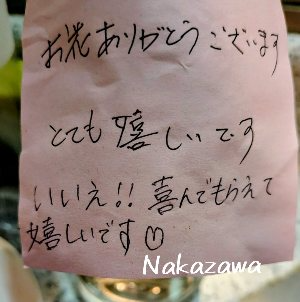 お花ありがとうございます
とても嬉しいです
いいえ!! 喜んでもらえて
嬉しいです☺
Nakazawa